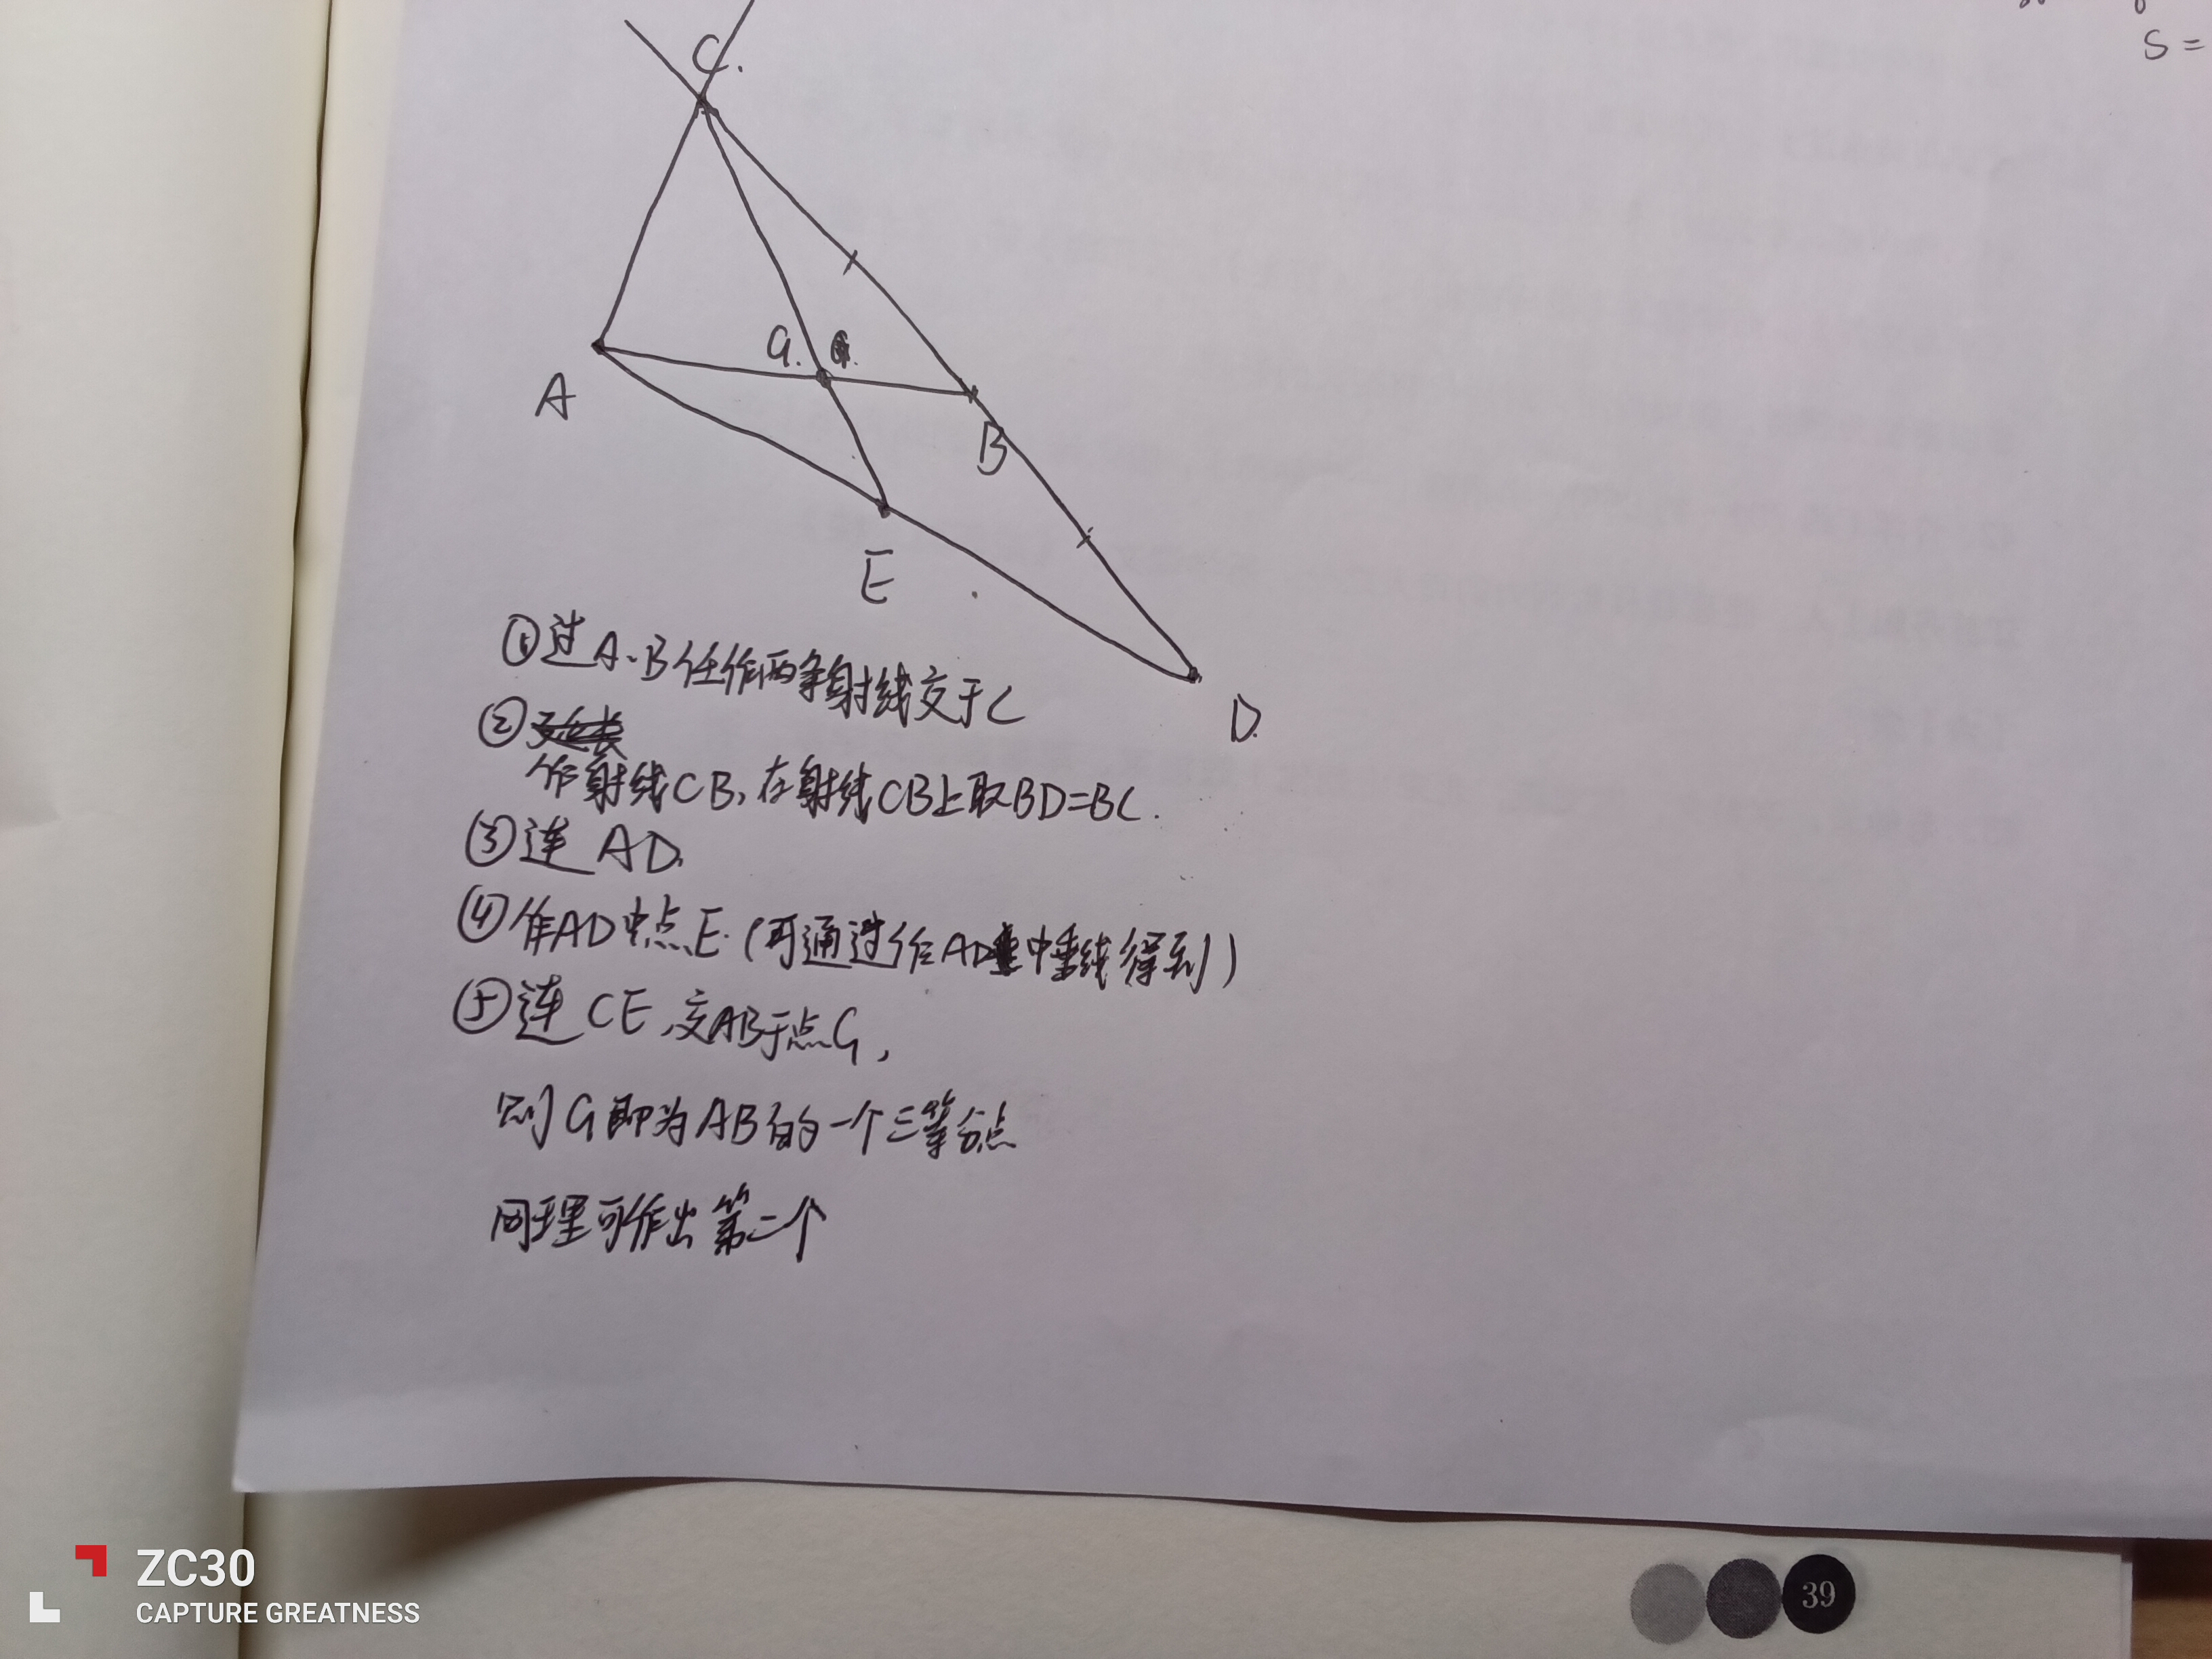 S =
C.
G.
A
B
E
D.
①过A、B任作两条射线交于C
②
作射线CB,在射线CB上取BD=BC.
③连AD.
④作AD中点E.(可通过作AD中垂线得到)
⑤连CE,交AB于点G,
则G即为AB的一个三等分点
同理可作出第二个
ZC30
CAPTURE GREATNESS
39